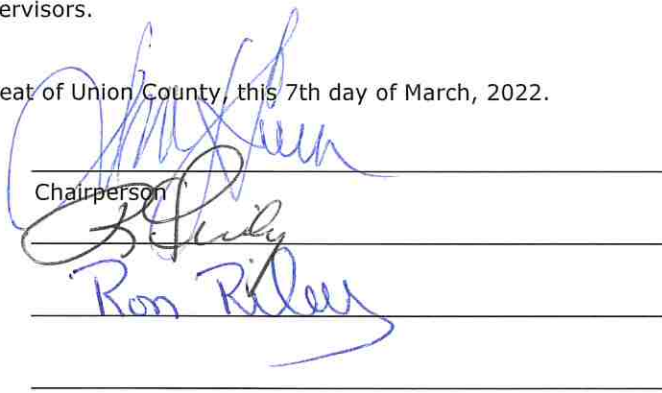 ervisors.
eat of Union County, this 7th day of March, 2022.
Chairperson
Ron Riley